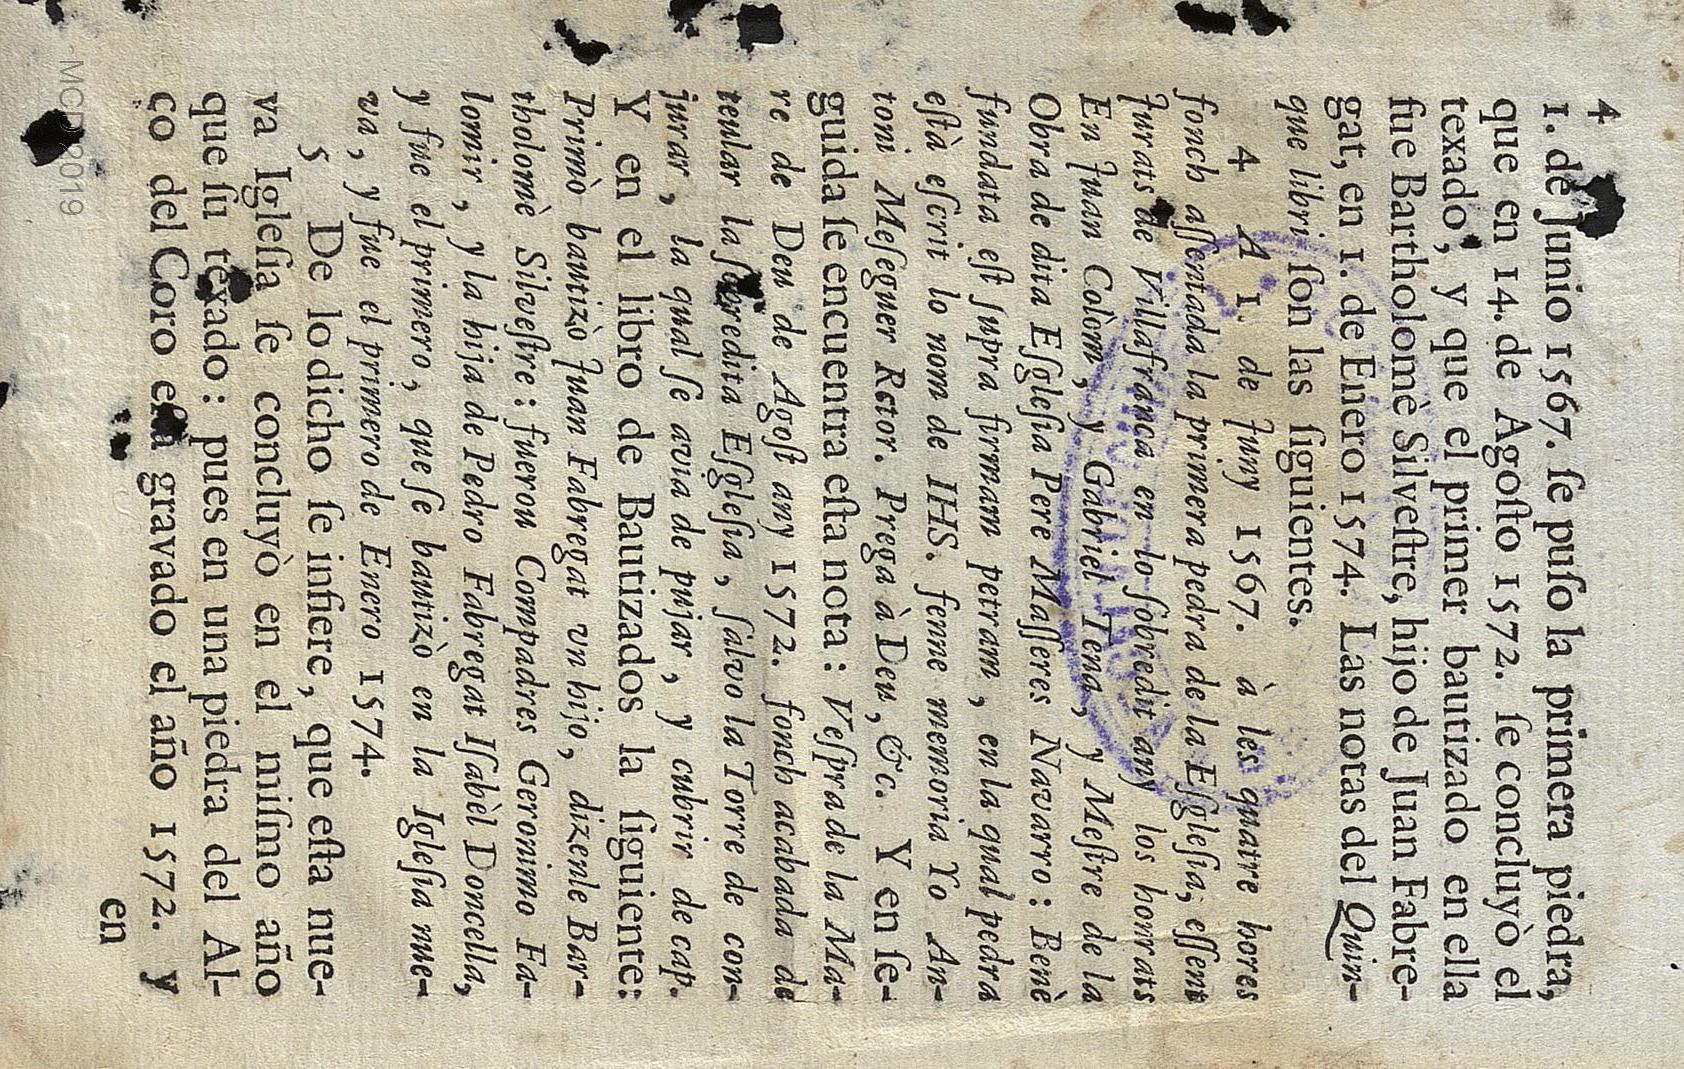 4
1. de Junio 1567. ſe puſo la primera piedra,
que en 14. de Agoſto 1572. ſe concluyò el
texado, y que el primer bautizado en ella
fue Bartholomè Silveſtre, hijo de Juan Fabre-
gat, en 1. de Enero 1574. Las notas del Quin-
que libri ſon las ſiguientes.
4 A 1. de Juny 1567. à les quatre hores
fonch aſſentada la primera pedra de la Eſgleſia, eſſent
Jurats de Villafranca en lo ſobredit any los honrats
En Juan Colòm, y Gabriel Tena, y Meſtre de la
Obra de dita Eſgleſia Pere Maſſeres Navarro: Benè
fundata eſt ſupra firmam petram, en la qual pedra
eſtà eſcrit lo nom de IHS. ſenne memoria Yo An-
toni Meſeguer Retor. Pregà à Deu, &c. Y en ſe-
guida ſe encuentra eſta nota: Veſpra de la Ma-
re de Deu de Agoſt any 1572. fonch acabada de
tenlar la ſobredita Eſgleſia, ſalvo la Torre de con-
jurar, la qual ſe avia de pujar, y cubrir de cap.
Y en el libro de Bautizados la ſiguiente:
Primò bautizò Juan Fabregat vn hijo, dizenle Bar-
tholomè Silveſtre: fueron Compadres Geronimo Fa-
lomir, y la hija de Pedro Fabregat Iſabèl Doncella,
y fue el primero, que ſe bautizò en la Igleſia nue-
va, y fue el primero de Enero 1574.
5 De lo dicho ſe infiere, que eſta nue-
va Igleſia ſe concluyò en el miſmo año
que ſu texado: pues en una piedra del Al-
co del Coro eſtà gravado el año 1572. y
en
MCD 2019